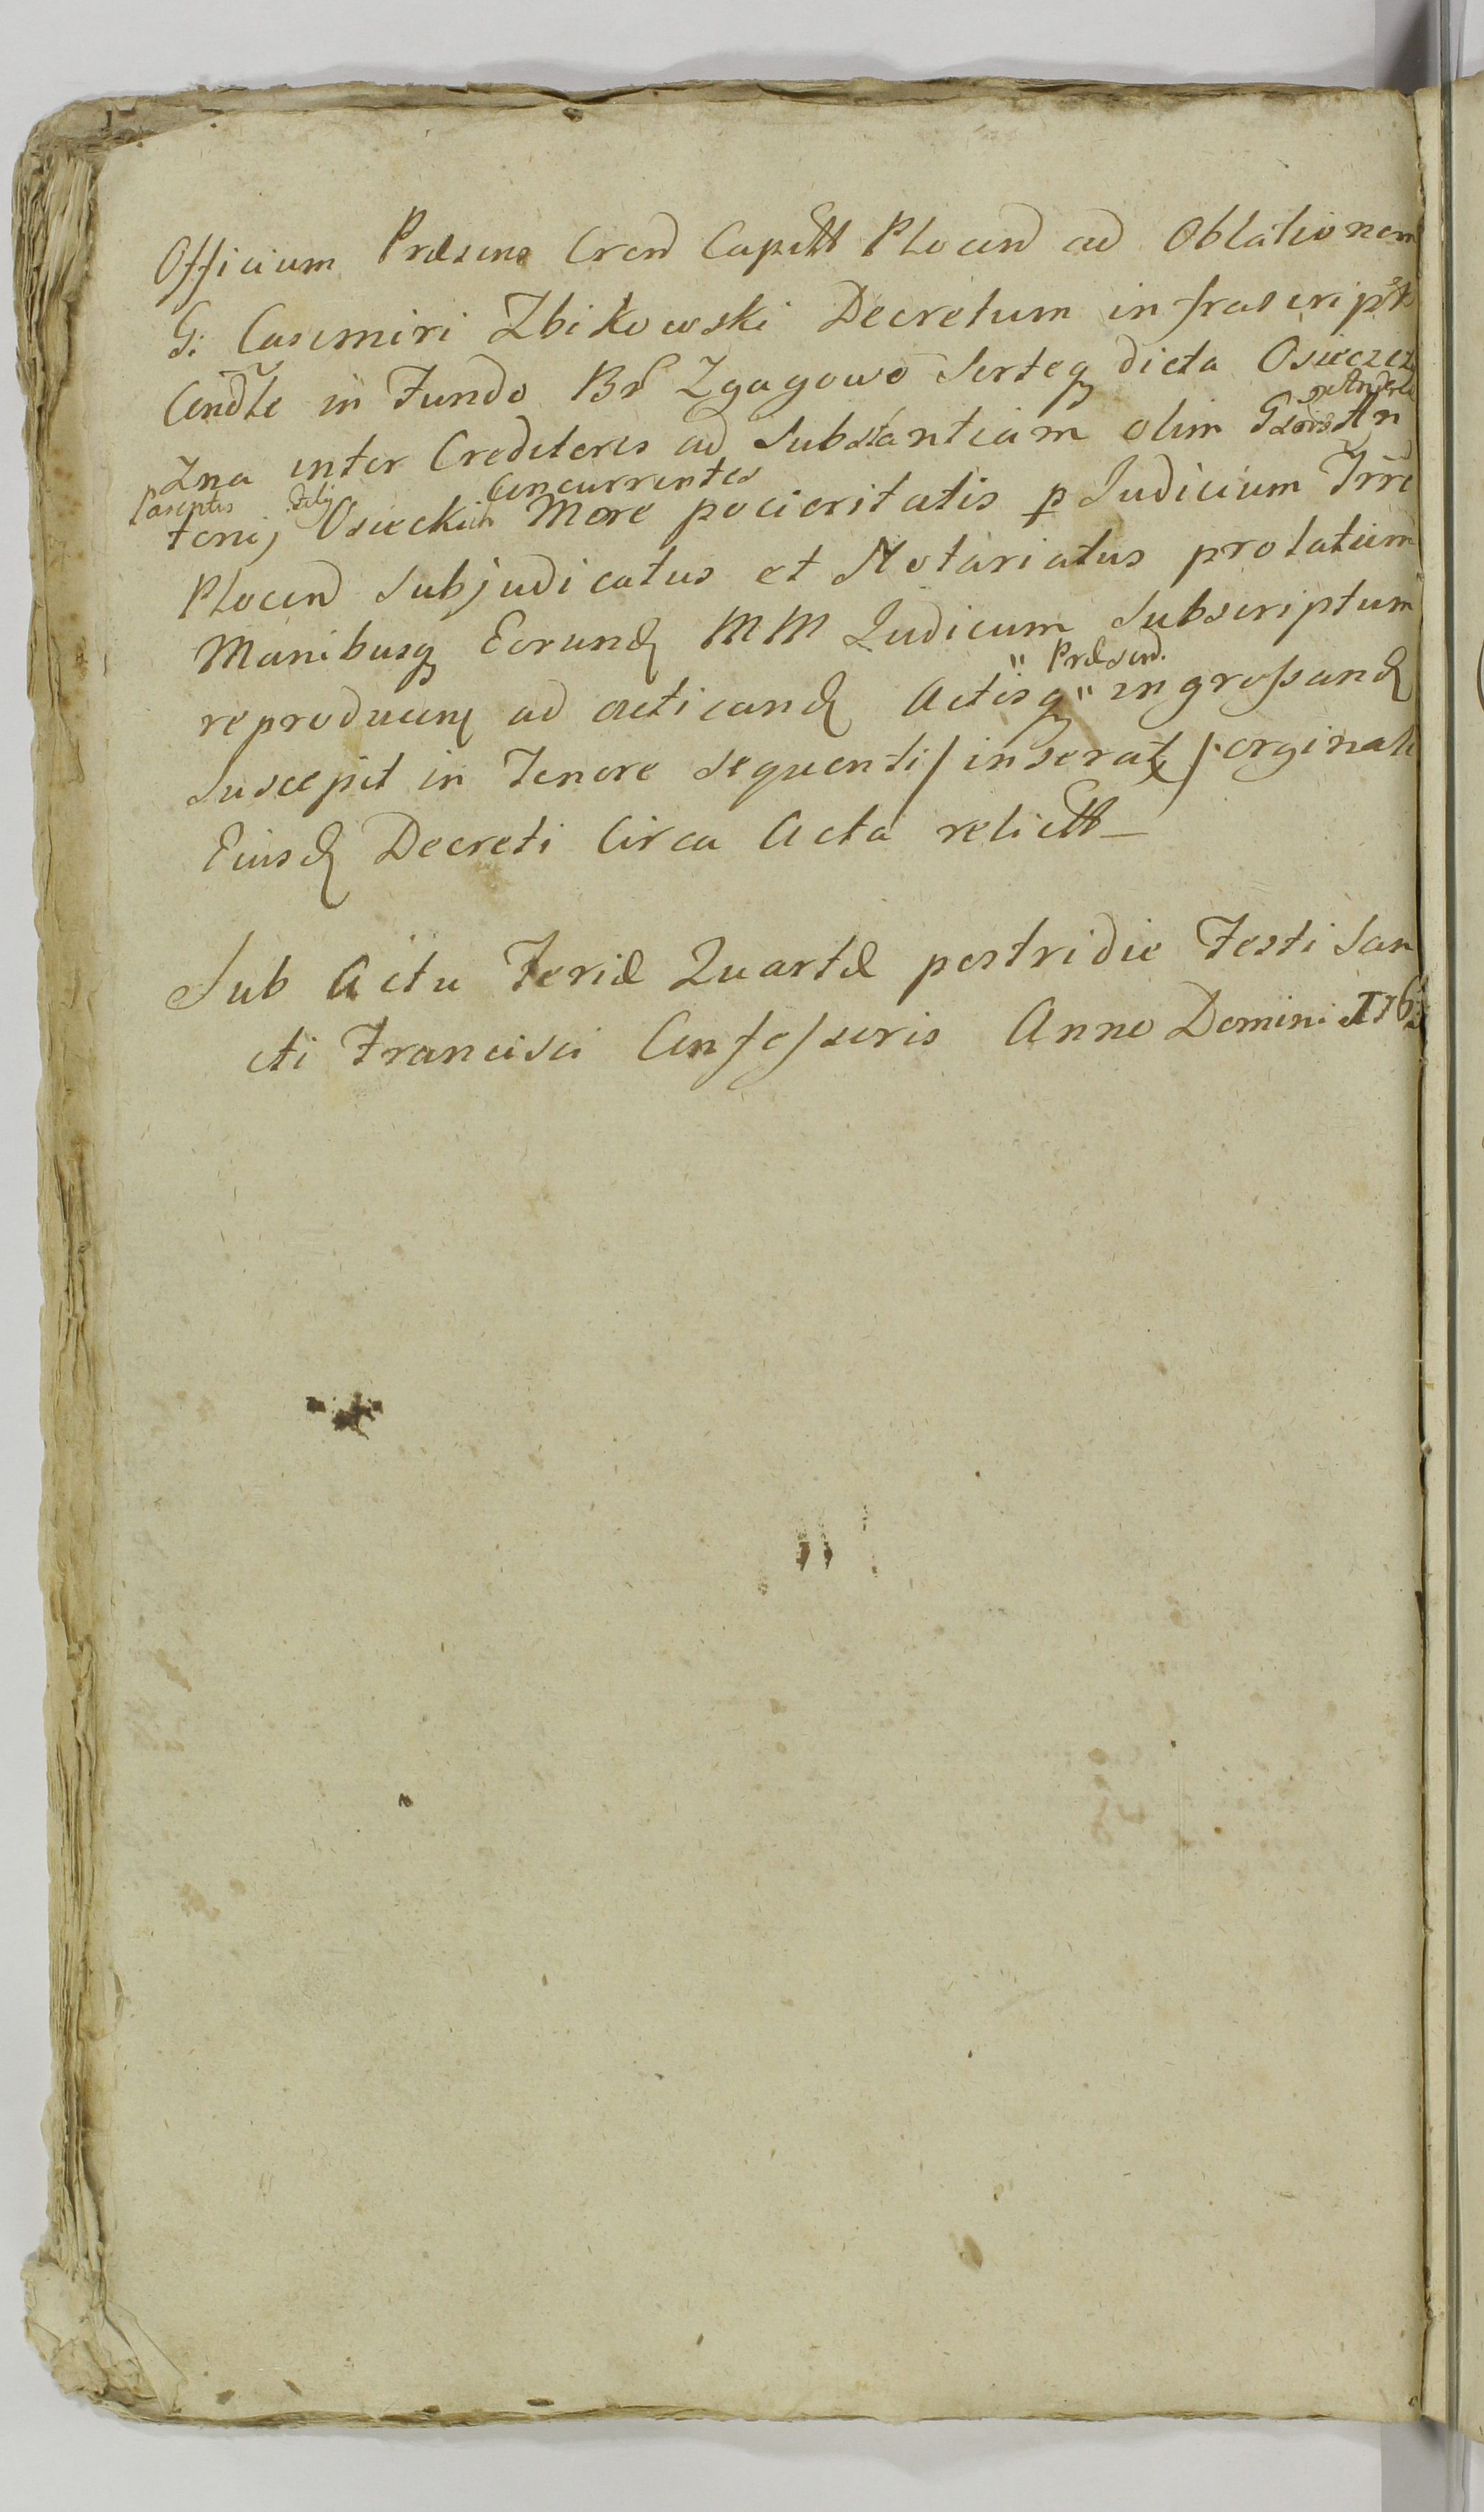 Officium Præsens Cren Capitt Plocen ad Oblationem
G. Casimiri Zbikowski Decretum infrascript
Condle in Fundo Br Zgagowo Sorteq dicta Osieczez
zna inter Creditores ad Substantiam olim An
Parentis Filij Concurrentes
tonij Osieckich More pocioritatis p Judicium Trre
Plocen Subjudicatus et Notariatus prolatum
Manibusq Eorund MM Judicum Subscriptum
Præsen.
reproducen ad acticand Actisq" ingrossand
Suscepit in Tenore sequenti / inserat / orginali
Eiusd Decreti Circa Acta relictt —
Sub Actu Feriæ Quartæ postridie Festi San
cti Francisci Confessoris Anno Domini